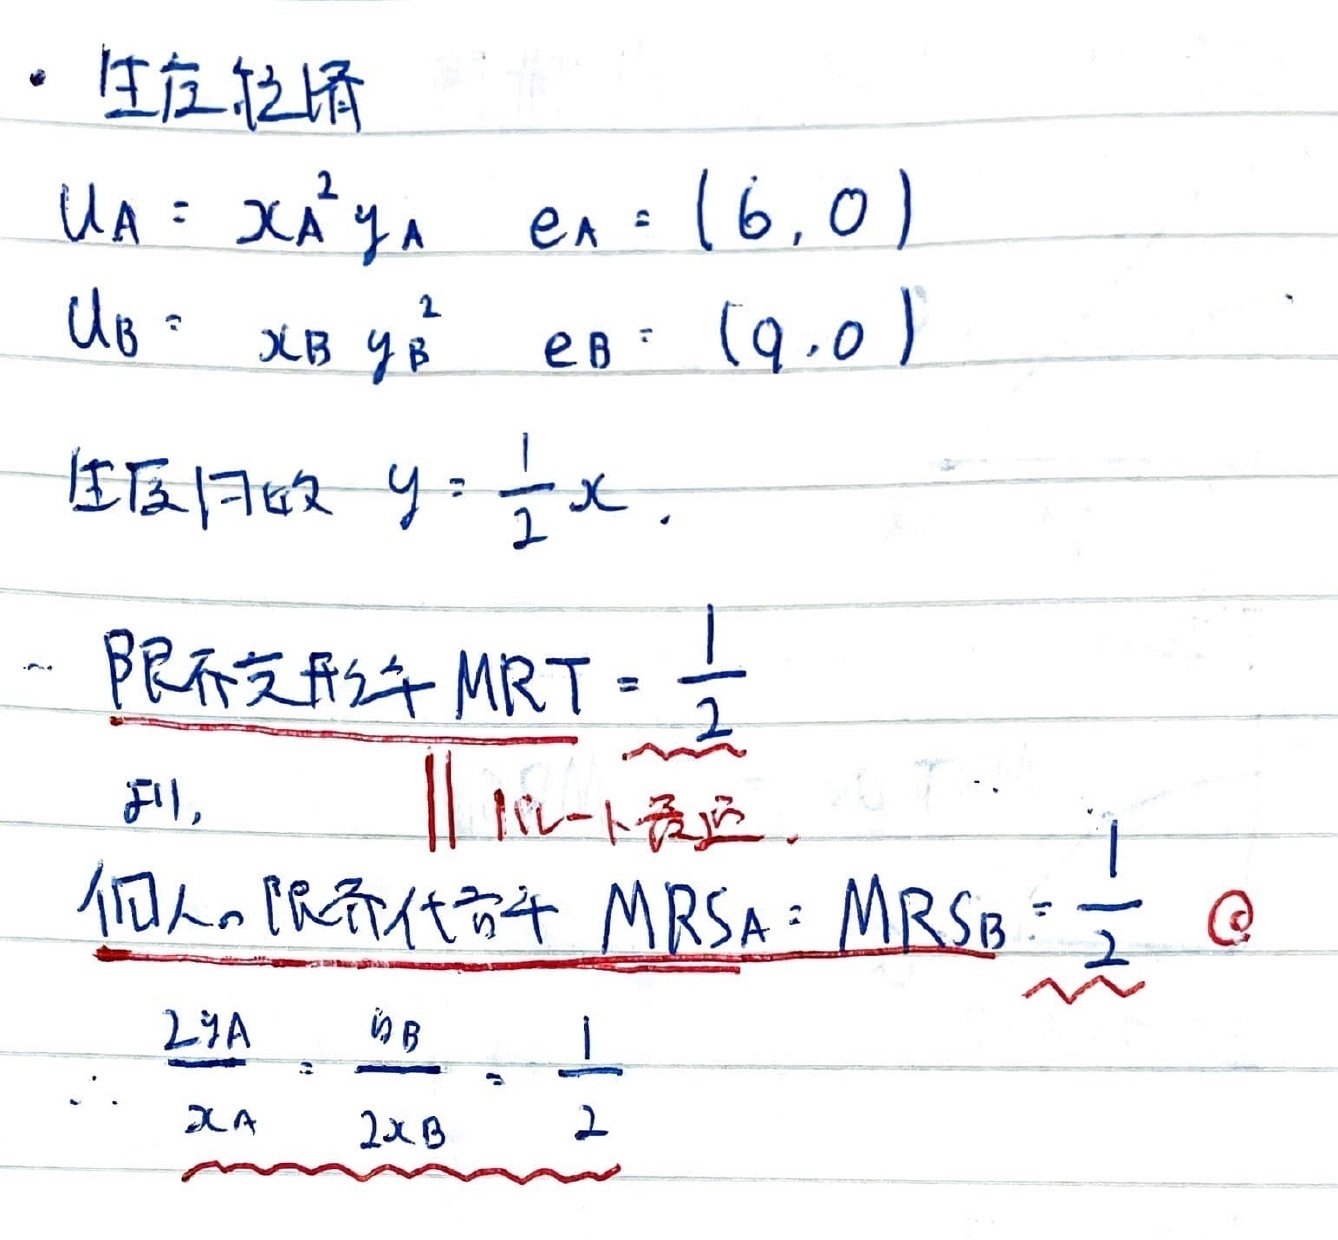 ・生産経済
UA = xA²yA eA = (6, 0)
UB = xB yB² eB = (9, 0)
生産関数 y = 1/2 x.
限界変形率 MRT = 1/2
より, || パレート最適.
個人の限界代替率 MRSA = MRSB = 1/2 @
∴ 2yA/xA = yB/2xB = 1/2